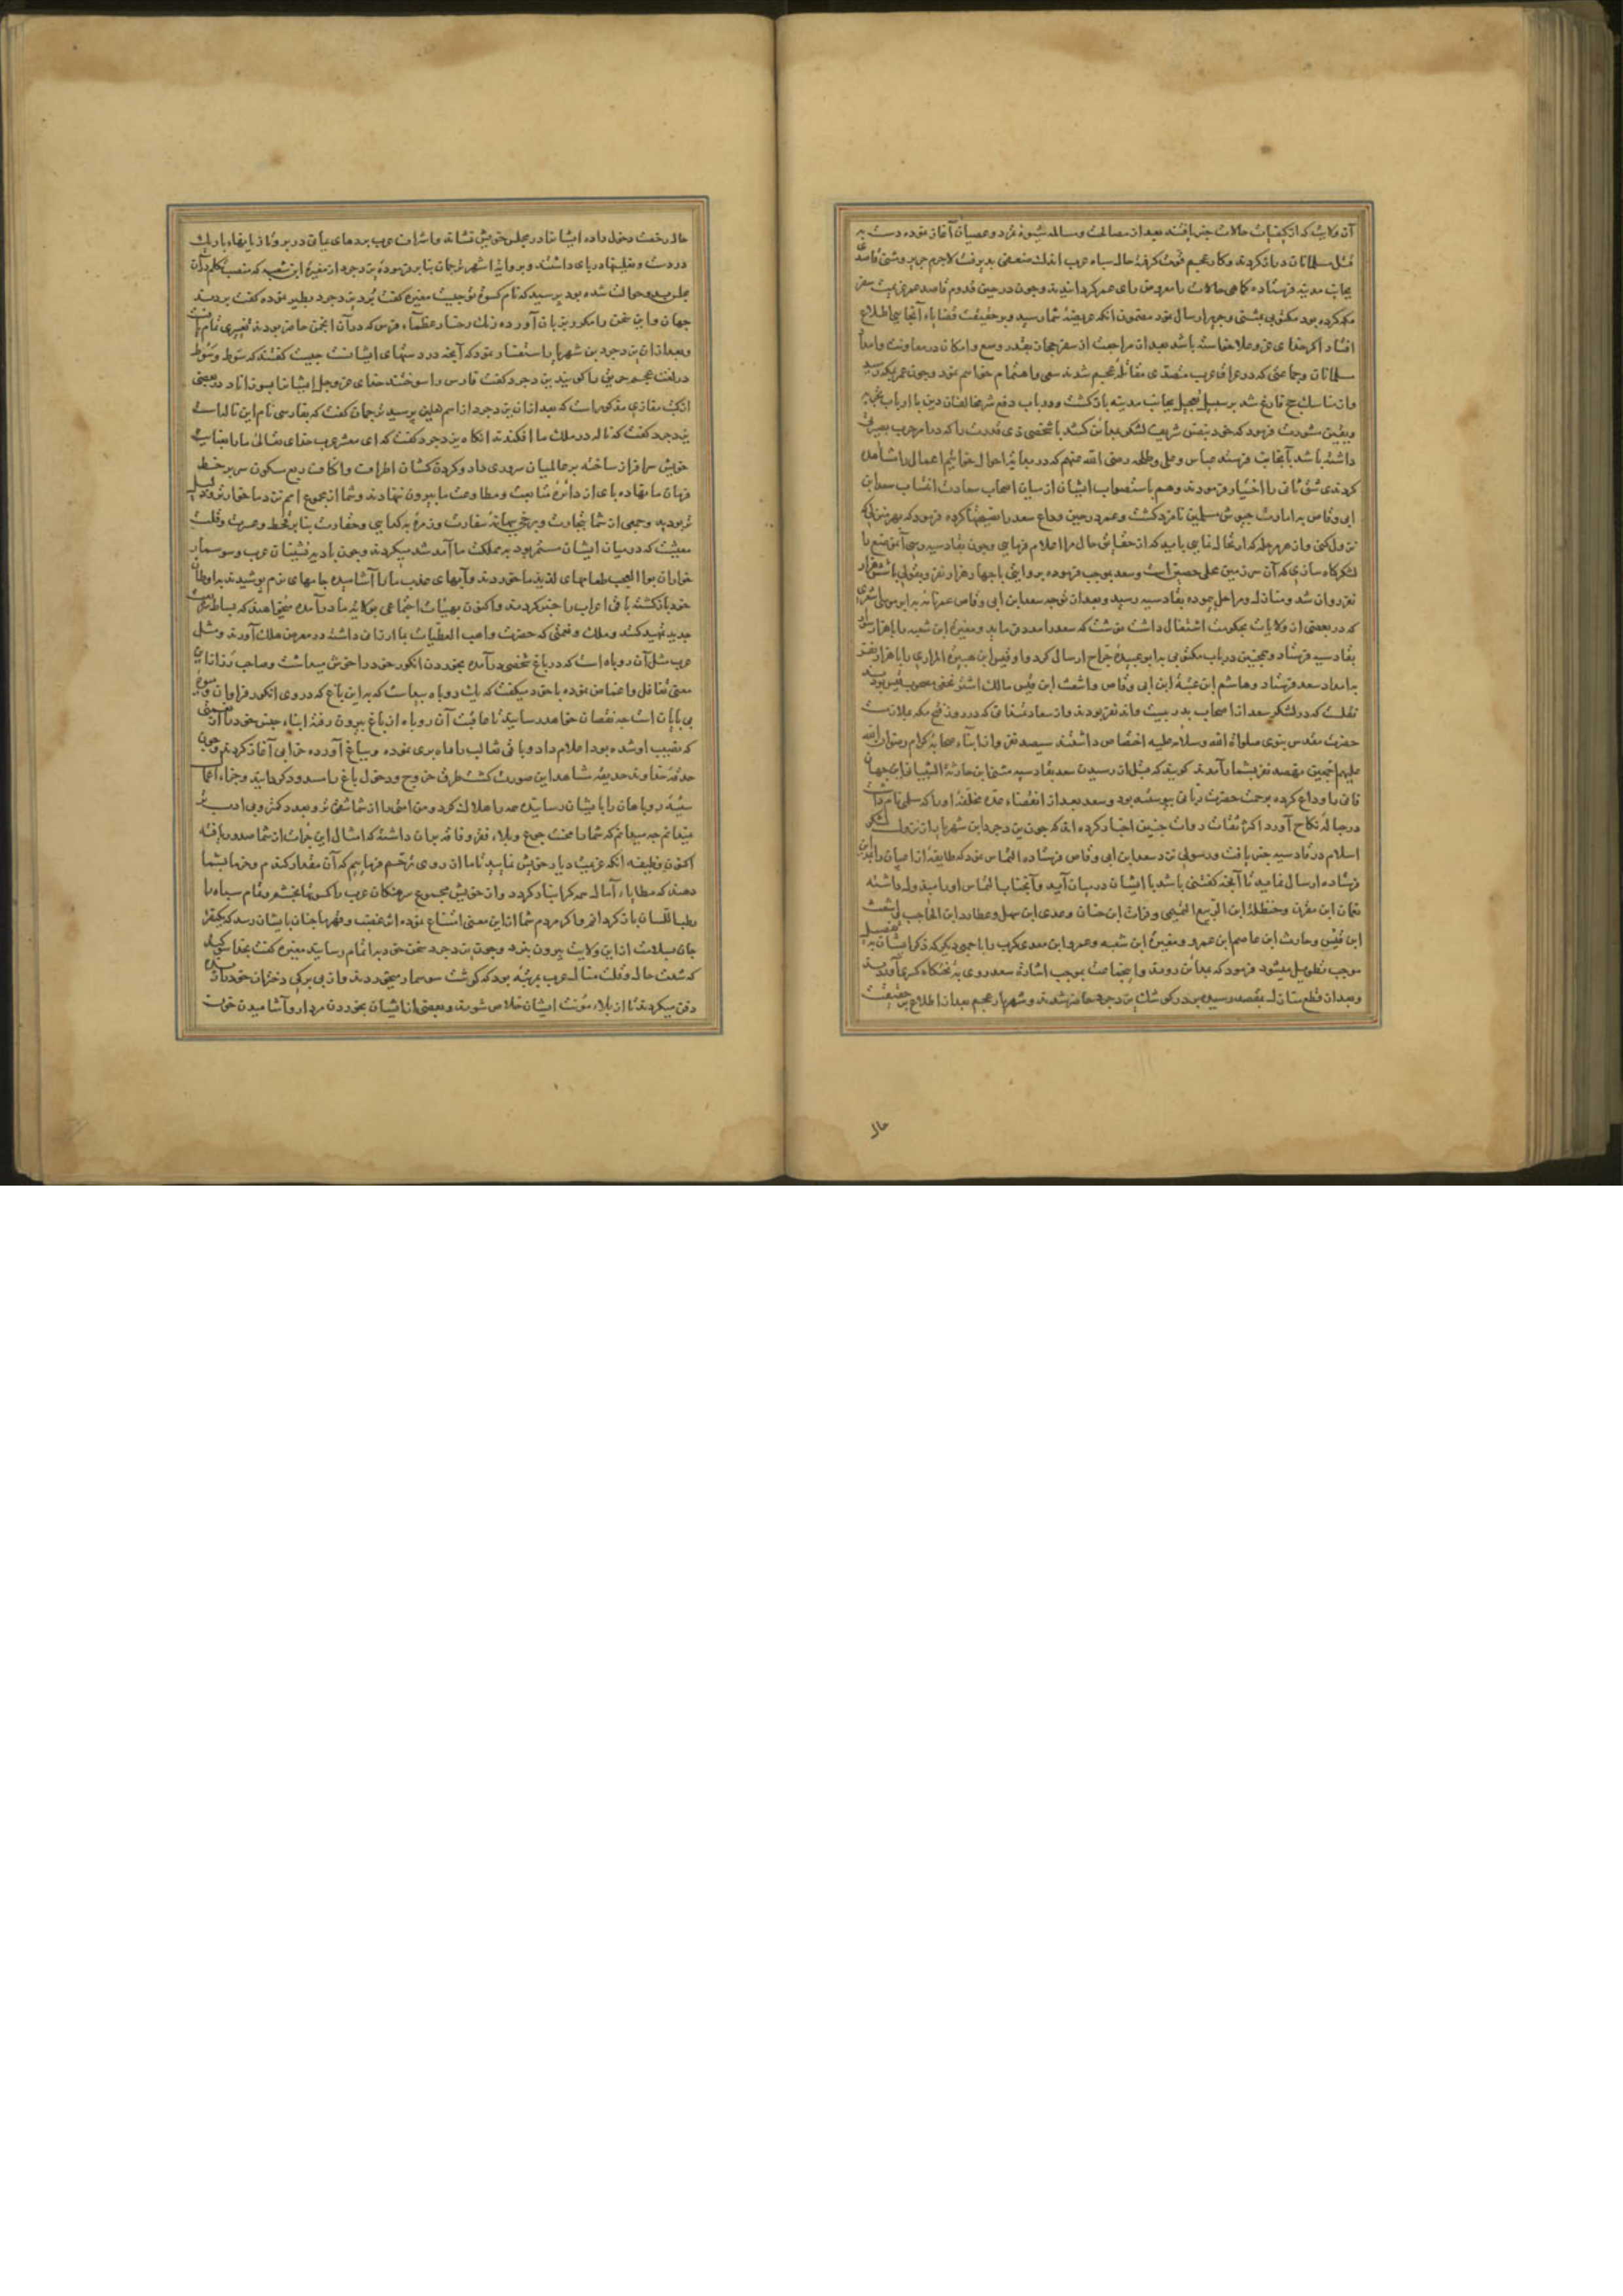 آن ولایت که از کیفیات حالات خبر یافتند بعد از مصالحت و مسالمت شیوهٔ تمرد و عصیان آغاز نموده دست به
قتل مسلمانان دراز کردند و کار عجم قوت گرفته حال سپاه عرب اندک ضعفی پذیرفت لاجرم جریر و مثنی قاصدی
بجانب مدینه فرستاده کماهی حالات را معروض رای عمر گردانیدند و چون در حین قدوم قاصد عمر عزیمت سفر
مکه کرده بود مکتوبی بمثنی و جریر ارسال نمود مضمون آنکه عریضهٔ شما رسید و بر حقیقت قضایاء آنجایی اطلاع
افتاد اگر خدای عز و علا خواسته باشد بعد از مراجعت از سفر حجاز بقدر وسع و امکان در معاونت و امداد
مسلمانان و جماعتی که در عراق عرب متصدی مقاتلهٔ عجم شدند سعی و اهتمام خواهم نمود و چون عمر بمکه رسید
و از مناسک حج فارغ شد بر سبیل تعجیل بجانب مدینه بازگشت و در باب دفع شر مخالفان دین با ارباب تجربه
و یقین مشورت فرمود که خود بنفس شریف لشکر بمداین کشد یا شخصی ذی قدرت را که در امر حرب بصیرت
داشته باشد بآنجانب فرستد عباس و علی و طلحه رضی الله عنهم که در مبادی احوال خواتیم اعمال را مشاهده
کردندی شق ثانی را اختیار فرمودند و هم باستصواب ایشان از میان اصحاب سعادت انتساب سعد ابن
ابی وقاص به امارت جیوش مسلمین نامزد گشت و عمر در حین وداع سعد را نصیحتها کرده فرمود که بهر منزل که
نزول کنی و از هر مرحله که ارتحال نمایی باید که از حقایق حال مرا اعلام فرمایی و چون بقادسیه رسی آن موضع را
لشکرگاه سازی که آن سرزمین محلی حصین است و سعد بموجب فرموده بروایتی با چهار هزار نفر و بقولی با شش هزار
نفر روان شد و منازل و مراحل پیموده بقادسیه رسید و بعد از توجه سعد ابن ابی وقاص عمر نامه به ابو موسی اشعری
که در بعضی از ولایات بحکومت اشتغال داشت نوشت که سعد را مدد فرماید و مغیرة ابن شعبه را با هزار سوار
بقادسیه فرستاد و همچنین در باب مکتوبی به ابو عبیدهٔ جراح ارسال کرد و او قیس ابن هبیرة المرادی را با هزار نفر
به امداد سعد فرستاد و هاشم ابن عتبة ابن ابی وقاص و اشعث ابن قیس و مالک اشتر نخعی مصحوب قیس بودند
نقلست که در لشکر سعد از اصحاب بدر بیست و اند نفر بودند و از سعادتمندانی که در روز فتح مکه ملازمت
حضرت مقدس نبوی صلواة الله و سلامه علیه اختصاص داشتند سیصد نفر و از ابناء صحابهٔ کرام رسول الله
علیهم اجمعین هفتصد نفر بشمار آمدند گویند که قبل از رسیدن سعد بقادسیه مثنی ابن حارثة الشیبانی این جهان
فانی را وداع کرده برحمت حضرت ربانی پیوسته بود و سعد بعد از انقضاء عدهٔ مخلفهٔ او را که سلمی نام داشت
در حبالهٔ نکاح آورد اکثر ثقات روات چنین اخبار کرده‌اند که چون یزدجرد ابن شهریار از نزول لشکر
اسلام در قادسیه خبر یافت و رسولی نزد سعد ابن ابی وقاص فرستاده التماس نمود که طایفهٔ از اعیان را نزد من
فرستاده ارسال نمایید تا آنچه گفتنی باشد با ایشان در میان آید و آنجناب التماس او را مبذول داشته
نعمان ابن مقرن و حنظلة ابن الربیع التمیمی و فرات ابن حنان و عدی ابن سهل و عطارد ابن الحاجب و اشعث
ابن قیس و حارث ابن عاصم ابن عمرو و مغیرة ابن شعبه و عمرو ابن معدی کرب را با جمعی دیگر که ذکر ایشان به تفصیل
موجب تطویل میشود فرمود که بمداین روند و آنجماعت بموجب اشارت سعد روی به تختگاه کسری آوردند
و بعد از قطع منازل بمقصد رسیده بر در کوشک یزدجرد حاضر شدند و شهریار عجم بعد از اطلاع بر حقیقت
حال
حال رخصت دخول داده ایشانرا در مجلس خویش نشاند و اشراف عرب بردهای یمانی در بر و تازیانهاء باریک
در دست و نعلینها در پای داشتند و بروایة اشهر ترجمان بنا بر فرمودهٔ یزدجرد از مغیرة ابن شعبه که منصب تکلم در آن
مجلس بدو حوالت شده بود پرسید که نام کسوت تو چیست مغیره گفت برد یزدجرد تطیر نموده گفت بردند
جهان و این سخن را مکرر بزبان آورده رنگ رخسار عظماء فرس که در آن انجمن حاضر بودند تغییری تمام یافت
و بعد از آن یزدجرد بن شهریار استفسار نمود که آنچه در دستهای ایشانست چیست گفتند که سوط و سوط
در لغت عجم حریق را گویند یزدجرد گفت فارس را سوختند خدای عز و جل ایشانرا بسوزاناد در بعضی
از کتب مغازی مذکور است که بعد از آن یزدجرد از اسم نعلین پرسید ترجمان گفت که بفارسی نام این ناله است
یزدجرد گفت که ناله در ملک ما افکندند آنگاه یزدجرد گفت که ای معشر عرب خدای تعالی ما را بعنایت
خویش سرافراز ساخته بر عالمیان سروری داد و گردن کشان اطراف و اکناف ربع مسکون سر بر خط
فرمان ما نهاده پای از دائرهٔ متابعت و مطاوعت ما بیرون ننهادند و شما از مجموع امم نزد ما خوارتر و ذلیل
تر بودید و جمعی از شما بتجارت و برخی ببهانهٔ سفارت و زمرهٔ به گدایی و حقارت بنا بر قحط و عسرت و قلت
معیشت که در میان ایشان مستمر بود به مملکت ما آمد شد میکردند و چون بادیه نشینان عرب و سوسمار
خواران بوالعجب طعامهای لذیذ ما خوردند و آبهای عذب ما را آشامیده جامهای نرم پوشیدند به اوطان
خود بازگشته باقی اعراب را خبر کردند و اکنون بهیأت اجتماعی بولایة ما درآمده میخواهند که بساط شریعت
جدید تمهید کنند و ملک و نعمتی که حضرت واهب العطیات بما ارزانی داشته در معرض هلاک آورند و مثل
عرب مثل آن روباه است که در باغ شخصی درآمده بخوردن انگور خود را خوش میداشت و صاحب رز از این
معنی تغافل و اغماض نموده با خود میگفت که یک روباه پیداست که به این باغ که در وی انگور فراوان و میوهٔ
بی پایان است چه نقصان خواهد رسانید تا عاقبت آن روباه از باغ بیرون رفته ابناء جنس خود را از نعمتی
که نصیب او شده بود اعلام داد و باقی ثعالب را همراه نموده و بباغ آورده خرابی آغاز کردند و چون
حدقهٔ خداوند حدیقه مشاهد این صورت گشت طرق خروج و دخول باغ را مسدود گردانید و جزاء اعمال
سیئه روباهان را بایشان رسانیده همه را هلاک کرد و من امنی را از شما شقی تر و بعدد کمتر و بی ادب تر
نمیدانم چه میدانم که شما را محنت جوع و بلاء فقر و فاقه بر آن داشته که امثال این جرأت از شما صدور یافته
اکنون وظیفه آنکه عزیمت دیار خویش نمایید تا ما از روی ترحم فرماییم که آن مقدار گندم و خرما بشما
دهند که مطایاء آمال همه گرانبار گردد و از خویش مجموع سرهنگان عرب را کسوتها بخشم و تمام سپاه را
رطب اللسان بازگردانم و اگر مردم شما از این معنی امتناع نموده اثر غضب و قهر ما چنان بایشان رسد که یکنفر
جان بسلامت از این ولایت بیرون نبرد و چون یزدجرد سخن خود به اتمام رسانید مغیره گفت بخدا سوگند
که شدت حال و قلت منال عرب بمرتبه بود که گوشت سوسمار میخوردند و از بی برگی دختران خود را زنده
دفن میکردند تا از بلاء مؤنت ایشان خلاص شوند و بعضی از ایشان بخوردن مردار و آشامیدن خون